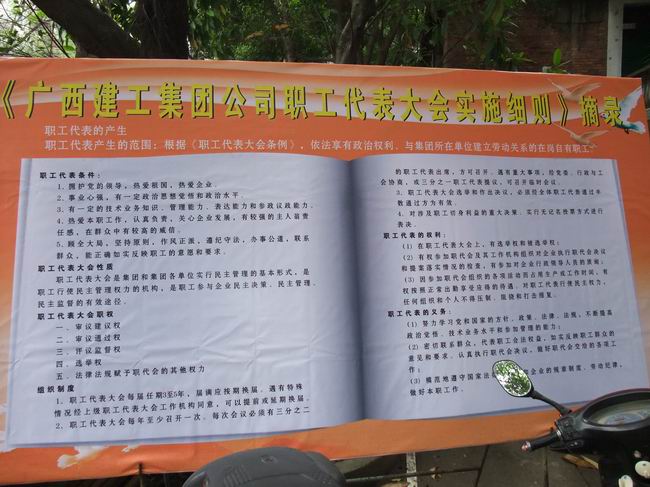 《广西建工集团公司职工代表大会实施细则》摘录
职工代表的产生
职工代表产生的范围：根据《职工代表大会条例》，依法享有政治权利、与集团所在单位建立劳动关系的在岗自有职工。
职工代表条件：
1、拥护党的领导，热爱祖国，热爱企业。
2、事业心强，有一定政治思想觉悟和政治水平。
3、有一定的技术业务知识、管理能力、表达能力和参政议政能力。
4、热爱本职工作，认真负责，关心企业发展，有较强的主人翁责
任感，在群众中有较高的威信。
5、顾全大局，坚持原则，作风正派，遵纪守法，办事公道，联系
群众，能正确如实反映职工的意愿和要求。
职工代表大会性质
职工代表大会是集团和集团各单位实行民主管理的基本形式，是
职工行使民主管理权力的机构，是职工参与企业民主决策、民主管理、
民主监督的有效途径。
职工代表大会职权
一、审议建议权
二、审议通过权
三、评议监督权
四、选举权
五、法律法规赋予职代会的其他权力
组织制度
1、职工代表大会每届任期3至5年，届满应按期换届。遇有特殊
情况经上级职工代表大会工作机构同意，可以提前或延期换届。
2、职工代表大会每年至少召开一次。每次会议必须有三分之二
的职工代表出席，方可召开。遇有重大事项，经党委、行政与工
会协商，或三分之一职工代表提议，可召开临时会议。
3、职工代表大会选举和作出决议，必须经全体职工代表通过半
数通过方为有效。
4、对涉及职工切身利益的重大决策、实行无记名投票方式进行
表决。
职工代表的权利：
(1) 在职工代表大会上，有选举权和被选举权；
(2) 有权参加职代会及其工作机构组织对企业执行职代会决议
和提案落实情况的检查，有参加对企业行政领导人员的质询；
(3) 因参加职代会组织的各项活动而占用生产或工作时间，有
权按照正常出勤享受应得的待遇。对职工代表行使民主权力，
任何组织和个人不得压制、阻挠和打击报复。
职工代表的义务：
(1) 努力学习党和国家的方针、政策、法律、法规，不断提高
政治觉悟、技术业务水平和参加管理的能力；
(2) 密切联系群众，代表职工合法权益，如实反映职工群众的
意见和要求，认真执行职代会决议，做好职代会交给的各项工
作；
(3) 模范地遵守国家法 企业的规章制度、劳动纪律，
做好本职工作。